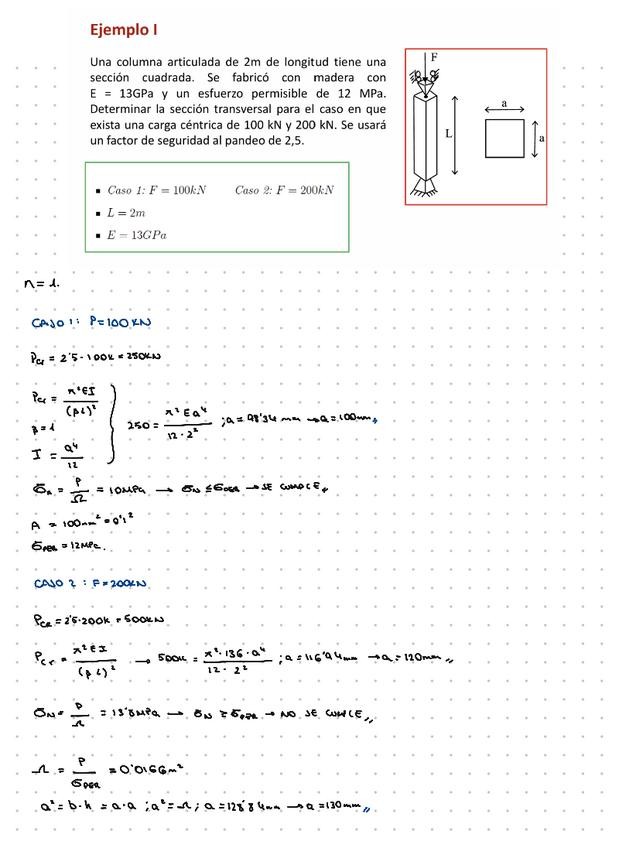 Ejemplo I
Una columna articulada de 2m de longitud tiene una
sección cuadrada. Se fabricó con madera con
E = 13GPa y un esfuerzo permisible de 12 MPa.
Determinar la sección transversal para el caso en que
exista una carga céntrica de 100 kN y 200 kN. Se usará
un factor de seguridad al pandeo de 2,5.
F
L
a
a
▪ Caso 1: F = 100kN Caso 2: F = 200kN
▪ L = 2m
▪ E = 13GPa
n = 1.
CASO 1: P=100KN
Pcr = 2'5·100K = 250KN
Pcr = π²EI / (βL)²
β = 1
I = a⁴ / 12
250 = π² E a⁴ / 12·2² ; a = 98'34 mm → a = 100mm,,
σN = P / Ω = 10MPa → σN ≤ σPER → SE CUMPLE,,
A = 100mm² = 0'1²
σPER = 12MPa.
CASO 2 : F = 200KN
PCR = 2'5·200K = 500KN
Pcr = π²EI / (βL)² → 500K = π²·13G·a⁴ / 12·2² ; a = 116'94mm → a = 120mm,,
σN = P / Ω = 13'8MPa → σN ≥ σPER → NO SE CUMPLE,,
Ω = P / σPER = 0'0166m²
a² = b·h = a·a ; a² = Ω ; a = 128'84mm → a = 130mm,,